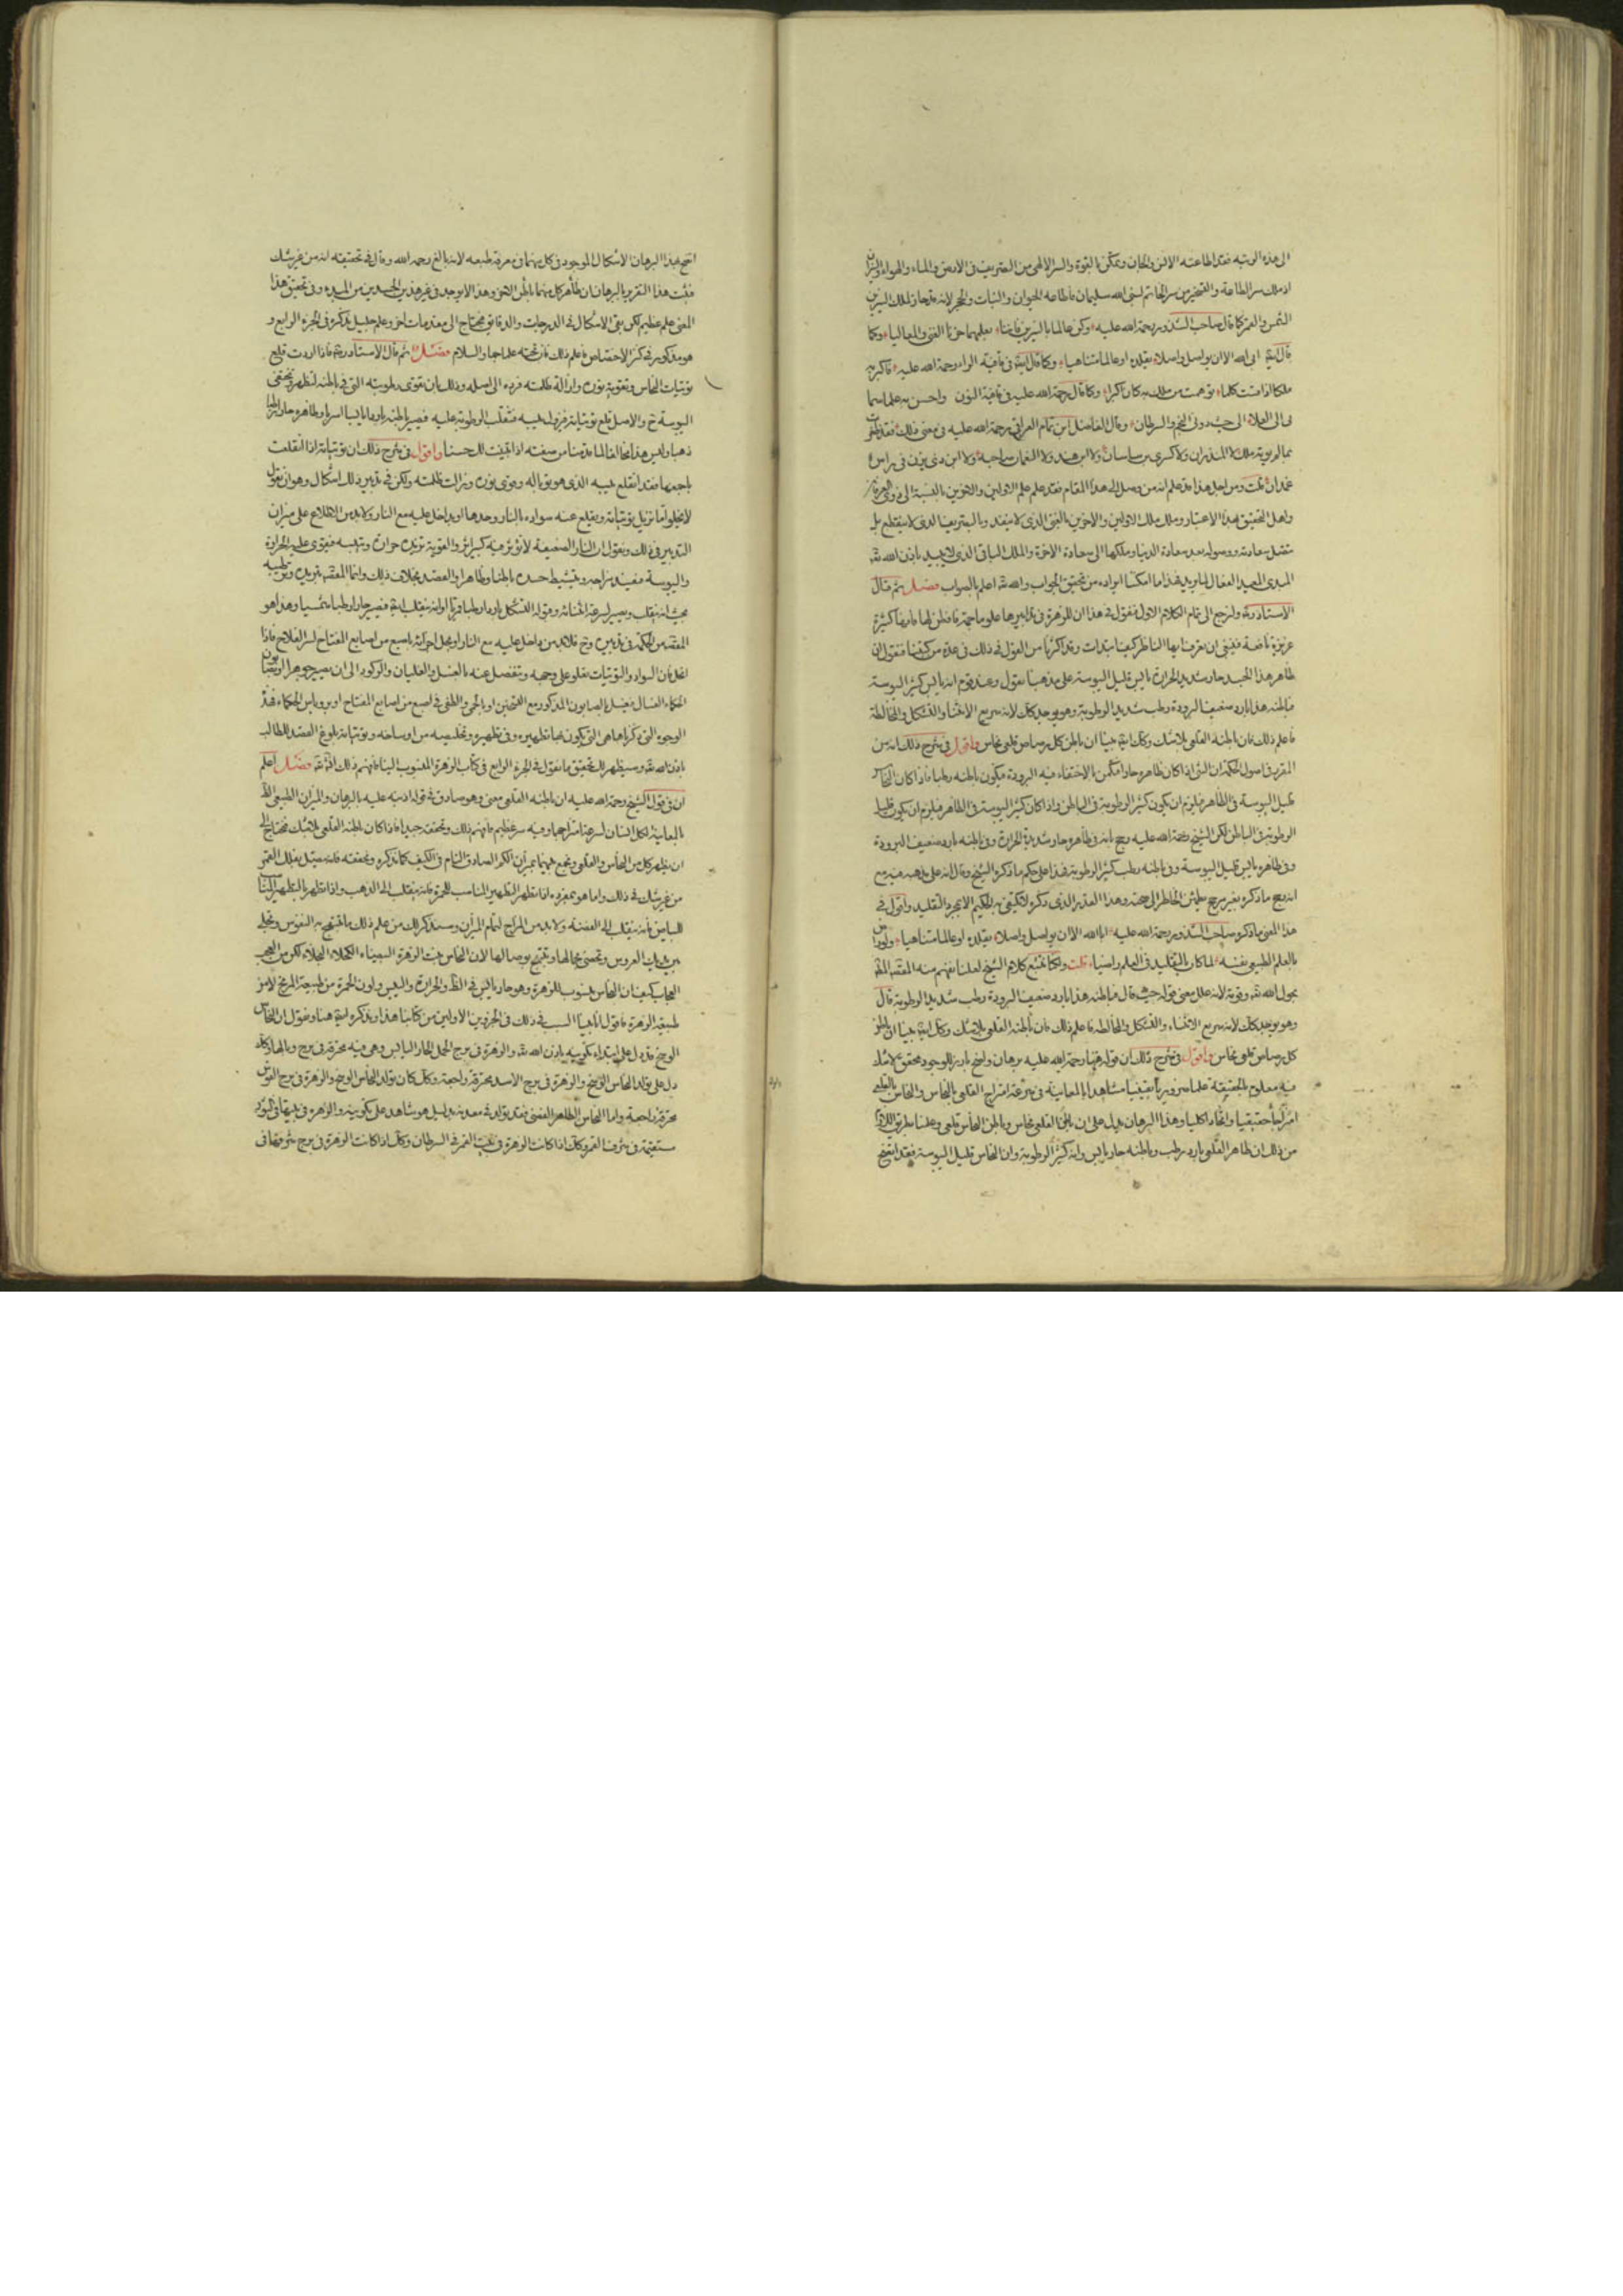 الى هذه الرتبه فقد اطاعته الانس والجان وتمكن بالقوة والسر الالهى من التصريف فى الارض والماء والهواء والنيران
اذ ملك سر الطاعة والتسخير من سر الخاتم لنبى الله سليمان فاطاعه الحيوان والنبات والحجر لانه قد حاز لملك النيرين
الشمس والقمر كما قال صاحب الشذور رحمة الله عليه وكن عالما بالنيرين فاننا بعلمهما حزنا الغنى والمعاليا وكما
قال ايضا ابى الله الا ان يواصل واصلا بقلده او عالما متناهيا وكما قال ايضا فى قافية الراء رحمة الله عليه فاكبر به
ملكا اذا قست كلما توهمت من ملك به كان اكبرا وكما قال رحمة الله عليه فى قافية النون واحسن به علما سما
بى الى العلاء الى حيث دونى النجم والسرطان وقال الفاضل ابن تمام العراقى رحمة الله عليه فى معنى ذلك فقد ظفرت
بما لم يؤته ملك لا المنذران ولا كسرى بن ساسان ولا ابن هند ولا النعمان صاحبه ولا ابن ذى يزن فى راس
غمدان قلت ومن اجل هذا قد علم انه من وصل الى هذا المقام فقد علم علم الاولين والاخرين بالنسبة الى
واهل التحقيق لهذا الاعتبار وملك ملك الاولين والاخرين بالغنى الذى لا ينفد وبالتصريف الذى لا ينقطع بل
متصل سعادته ووصوله بعد سعادة الدنيا وملكها الى سعادة الاخرة والملك الباقى الذى لا يبيد باذن الله تعالى
المبدى المعيد الفعال لما يريد فهذا ما امكننا ايراده من تحقيق الجواب والله تعالى اعلم بالصواب فصل ثم قال
الاستاذ ولنرجع الى تمام الكلام الاول فنقول فى هذا ان للزهرة فى تدابيرها علوما جمة فافطن لها فانها كثيرة
غزيرة نافعة فينبغى ان تعرف ايها الناظر كيف ابتدات وقد اكثرنا من القول فى ذلك فى عدة من كتبنا فنقول ان
ظاهر هذا الجسد حار شديد الحرارة يابس قليل اليبوسة على مذهبنا نقول وعند قوم انه يابس كثير اليبوسة
فباطنه هذا بارد ضعيف البرودة رطب شديد الرطوبة وهو يوجد كذلك لانه سريع الانثناء والتشكل والمخالطة
فاعلم ذلك فان باطنه القلعى بلا شك وكذلك ايضا بينا ان باطن كل رصاص قلعى نحاس واقول فى شرح ذلك انه من
المقرر فى اصول الحكمة ان الشى اذا كان ظاهره حارا فتكمن بالاختفاء فيه البرودة فيكون باطنه رطبا فاذا كان النحاس
قليل اليبوسة فى الظاهر فيلزم ان يكون كثير الرطوبة فى الباطن واذا كان كثير اليبوسة فى الظاهر فيلزم ان يكون قليل
الرطوبة فى الباطن لكن الشيخ رحمة الله عليه رجح بانه فى ظاهره حار شديد الحرارة وفى باطنه بارد ضعيف البرودة
وفى ظاهره يابس قليل اليبوسة وفى باطنه رطب كثير الرطوبة فهذا على حكم ما ذكره الشيخ وقال انه على مذهبه فيه مع
انه رجح ما ذكره بغير مرجح يطمئن الخاطر الى صحته وهذا القدر الذى ذكره لا يكتفى به الحكيم الا بمجرد التقليد واقول فى
هذا المعنى ما ذكره صاحب الشذور رحمة الله عليه ابا الله الا ان يواصل واصلا بقلده او عالما متناهيا
بالعلم الطبيعى نفسه لما كان بالتقليد فى العلم راضيا قلت ولكنا نتبع كلام الشيخ لعلنا نفهم منه المقصد
بحول الله تعالى وقوته لانه علل معنى قوله حيث قال فباطنه هذا بارد ضعيف البرودة رطب شديد الرطوبة قال
وهو يوجد كذلك لانه سريع الانثناء والتشكل والمخالطة فاعلم ذلك فان باطنه القلعى بلا شك وكذلك ايضا بينا ان باطن
كل رصاص قلعى نحاس واقول فى شرح ذلك ان قوله فيها رحمة الله عليه برهان واضح بارز للوجود محقق لا شك
فيه معلوم بالحقيقة علما ضروريا يقينيا مشاهدا بالمعاينة فى سرعة امتزاج القلعى بالنحاس والنحاس بالقلعى
امتزاجا حقيقيا واتحادا كليا وهذا البرهان يدل على ان باطن القلعى نحاس وباطن النحاس قلعى وعلمنا بطريق اللازم
من ذلك ان ظاهر القلعى بارد رطب وباطنه حار يابس وانه كثير الرطوبة وان النحاس قليل اليبوسة فقد اتضح
اتضح بهذا البرهان الاشكال الموجود فى كل منهما فى معرفة طبعه لانه بالغ رحمه الله وقال فى تحقيقه انه من غير شك
فثبت هذا التقرير بالبرهان ان ظاهر كل منهما باطن الاخر وهذا لا يوجد فى غير هذين الجسدين من المبدء وفى تحقيق هذا
المعنى علم عظيم لكن بقى الاشكال فى الدرجات والدقائق محتاج الى مقدمات اخر وعلم جليل نذكره فى الجزء الرابع و
هو مذكور فى كنز الاختصاص فاعلم ذلك فان تحته علما جما والسلام فصل ثم قال الاستاذ فاذا اردت قلع
توتيات النحاس وتقوية نوره وازالة ظلمته فرده الى اصله وذلك بان تقوى رطوبته التى فى باطنه لتظهر وتختفى
اليبوسة والاصل قلع توتياته فيزول عيبه فتغلب الرطوبة عليه فيصير باطنه باردا يابسا اسربا وظاهره حارا رطبا
ذهبا وليس هذا مخالفا لما قدمنا من صفته اذا تبينت لك حسنا واقول فى شرح ذلك ان توتياته اذا انقلعت
باجمعها فقد انقلع عيبه الذى هو توباله وقوى نوره وزالت ظلمته ولكن فى تدبير ذلك اشكال وهو ان نقول
لا يخلو اما تزيل توتياته ويقلع عنه سواده بالنار وحدها او بداخل عليه مع النار ولا بد من الاطلاع على ميزان
التدبير فى ذلك ونقول ان النار الضعيفة لا تؤثر فيه كبير اثر والقوية تزيده حرارة وتلهبه فيقوى عليه الحرارة
واليبوسة فيفسد مزاجه ويتشيط جسده باطنا وظاهرا والقصد بخلاف ذلك وانما المقصد تبريده وترطيبه
بحيث انه ينقلب ويصير لسرعة انثنائه وقوله التشكل باردا رطبا قمريا اولا ثم ينقلب ايضا فيصير حارا رطبا شمسيا وهذا هو
المقصد من الحكمة فى تدبيره فلا بد من داخل عليه مع النار او بدل حرارته باصبع من اصابع المفتاح لسر الفلاح فاذا
انحل فان السواد والتوتيات يعلو على وجهه وتنفصل عنه بالغسل والغليان والركود الى ان يصير جوهرا
الحكماء الغسال فيغسل بالصابون المذكور مع التسخين او بالحمى والطفى فى اصبع من اصابع المفتاح
الوجوه التى ذكرناها هى التى يكون بها تطهيره وفى تطهيره وتخليصه من اوساخه وتوتياته بلوغ القصد للطالب
باذن الله تعالى وسيظهر لك تحقيق ما نقول فى الجزء الرابع فى كتاب الزهرة المنسوب الينا فافهم ذلك فصل اعلم
ان فى قول الشيخ رحمة الله عليه ان باطنه القلعى معنى وهو صادق فى قوله اذ نبه عليه بالبرهان والميزان الطبيعى
بالمعاينة لكل انسان لسرعة امتزاجهما وفيه سر عظيم فافهم ذلك وتحققه جيدا فاذا كان باطنه القلعى بلا شك فنحتاج الى
ان يطهر كل من النحاس والقلعى ونجمع بينهما بميزان الكم الصادق التام فى الكيف كما نذكره ونحققه فانه يتصل بفلك القمر
من غير شك فى ذلك واما هو بمفرده اذا تطهر التطهير المناسب للحمرة فانه ينقلب الى الذهب واذا تطهر بالتطهير
للبياض فانه ينقلب الى الفضة ولا بد من المزاج لتمام الميزان وسنذكر لك من علم ذلك ما تبتهج به النفوس وتجلى
بين يديك العروس وتمسى بجمالها وتتمتع بوصالها لان النحاس بنت الزهرة البيضاء الكحلاء النجلاء لكن من العجب
العجاب كيف ان النحاس منسوب للزهرة وهو حار يابس فى الظاهر والحرارة واليبس ولون الحمرة من طبيعة المريخ لا من
طبيعة الزهرة فاقول انا بينا السبب فى ذلك فى الجزوين الاولين من كتابنا هذا ونذكره ايضا هنا ونقول ان النحاس
الوسخ قد دل على ابتداء تكوينه باذن الله تعالى والزهرة فى برج الحمل الحار اليابس وهى فيه محترقة فى برج وبالها وكذلك
دل على تولد النحاس الوسخ والزهرة فى برج الاسد محترقة راجعة وكذلك كان تولد النحاس الوسخ والزهرة فى برج القوس
محترقة راجعة واما النحاس الطاهر الفضى فقد تولد فى معدنه بدليل هو شاهد على تكوينه والزهرة فى بيتها فى الثور
مستقيمة فى شرف القمر وكذلك اذا كانت الزهرة فى بيت القمر فى السرطان وكذلك اذا كانت الزهرة فى برج شرفها فى